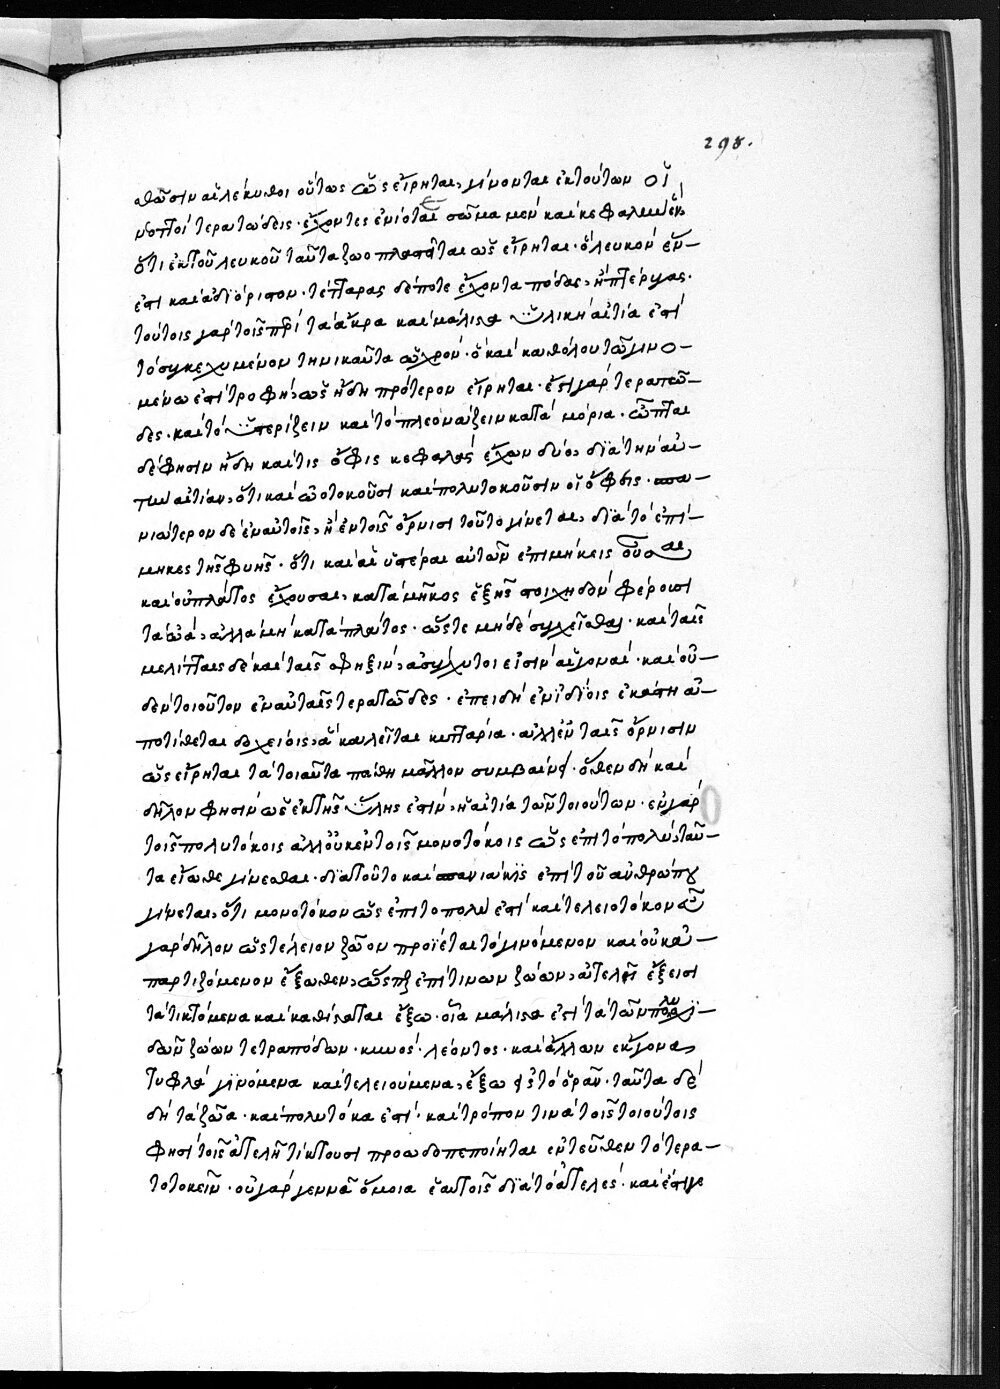 298.
θῶσιν αἱ λέκυθοι οὕτως ὡς εἴρηται, γίνονται ἐκ τούτων οἱ
νεοττοὶ τερατώδεις· ἔχοντες ἐνίοτε σῶμα μὲν καὶ κεφαλὴν ἓν
ὅτι ἐκ τοῦ λευκοῦ ταῦτα ζωοπλαστεῖται ὡς εἴρηται· ὃ λευκὸν ἕν
ἐστι καὶ ἀδιόριστον· τέτταρας δέ ποτε ἔχοντα πόδας, ἢ πτέρυγας·
τούτοις γὰρ τοῖς περὶ τὰ ἄκρα καὶ μάλιστα ὑλικὴ αἰτία ἐστὶ
τὸ συγκεχυμένον τηνικαῦτα ὠχρόν· ὃ καὶ καθόλου τῶ γινο
μένω ἐστὶ τροφή, ὡς ἤδη πρότερον εἴρηται· ἔστι γὰρ τερατῶ
δες· καὶ τὸ ὑστερίζειν καὶ τὸ πλεονάζειν κατὰ μόρια· ὦπται
δέ φησιν ἤδη καί τις ὄφις κεφαλὰς ἔχων δύο, διὰ τὴν αὐ
τὴν αἰτίαν, ὅτι καὶ ὠοτοκοῦσι καὶ πολυτοκοῦσιν οἱ ὄφεις· σπα
νιώτερον δὲ ἐν αὐτοῖς, ἢ ἐν τοῖς ὄρνισι τοῦτο γίνεται, διὰ τὸ ἐπί
μηκες τῆς φυῆς· ὅτι καὶ αἱ ὑστέραι αὐτῶν ἐπιμήκεις οὖσαι
καὶ οὐ πλάτος ἔχουσαι, κατὰ μῆκος ἑξῆς στοιχηδὸν φέρουσι
τὰ ὠά, ἀλλὰ μὴ κατὰ πλάτος· ὥστε μηδὲ συγχεῖσθαι· καὶ ταῖς
μελίτταις δὲ καὶ ταῖς σφηξὶν, ἀσύγχυτοι εἰσὶν αἱ γοναί· καὶ οὐ
δὲν τοιοῦτον ἐν αὐταῖς τερατῶδες· ἐπειδὴ ἐν ἰδίοις ἑκάστη ἀ
ποτίθεται δοχείοις, ἃ καλεῖται κυττάρια· ἀλλ' ἐν ταῖς ὄρνισιν
ὡς εἴρηται τὰ τοιαῦτα πάθη μᾶλλον συμβαίνει· ὅθεν δὴ καὶ
δῆλον φησὶν ὡς ἐκ τῆς ὕλης ἐστὶν, ἡ αἰτία τῶν τοιούτων· ἐν γὰρ
τοῖς πολυτόκοις ἀλλ' οὐκ ἐν τοῖς μονοτόκοις ὡς ἐπὶ τὸ πολὺ, ταῦ
τα εἴωθε γίνεσθαι· διὰ τοῦτο καὶ σπανιάκις ἐπὶ τοῦ ἀνθρώπου
γίνεται, ὅτι μονοτόκον ὡς ἐπὶ τὸ πολὺ ἐστὶ καὶ τελειοτόκον ὂν
γὰρ δῆλον ὡς τέλειον ζῶον προΐεται τὸ γινόμενον καὶ οὐκ ἀ
παρτιζόμενον ἔξωθεν, ὥσπερ ἐπί τινων ζώων, ἀτελῆ ἔξεισι
τὰ τικτόμενα καὶ καθίσταται ἔξω· οἷα μάλιστα ἐστὶ τὰ τῶν πολυσχι
δῶν ζώων τετραπόδων· κυνός· λέοντος· καὶ ἄλλων ἔκγονα,
τυφλὰ γινόμενα καὶ τελειούμενα, ἔξω εἰς τὸ ὁρᾶν· ταῦτα δὲ
δὴ τὰ ζῶα· καὶ πολυτόκα ἐστί· καὶ τρόπον τινὰ τοῖς τοιούτοις
φησὶ τοῖς ἀτελῆ τίκτουσι προωδοπεποίηται ἐντεῦθεν τὸ τερα
τοτοκεῖν· οὐ γὰρ γεννᾶ ὅμοια ἑαυτοῖς διὰ τὸ ἀτελές· καὶ ἔστι γε